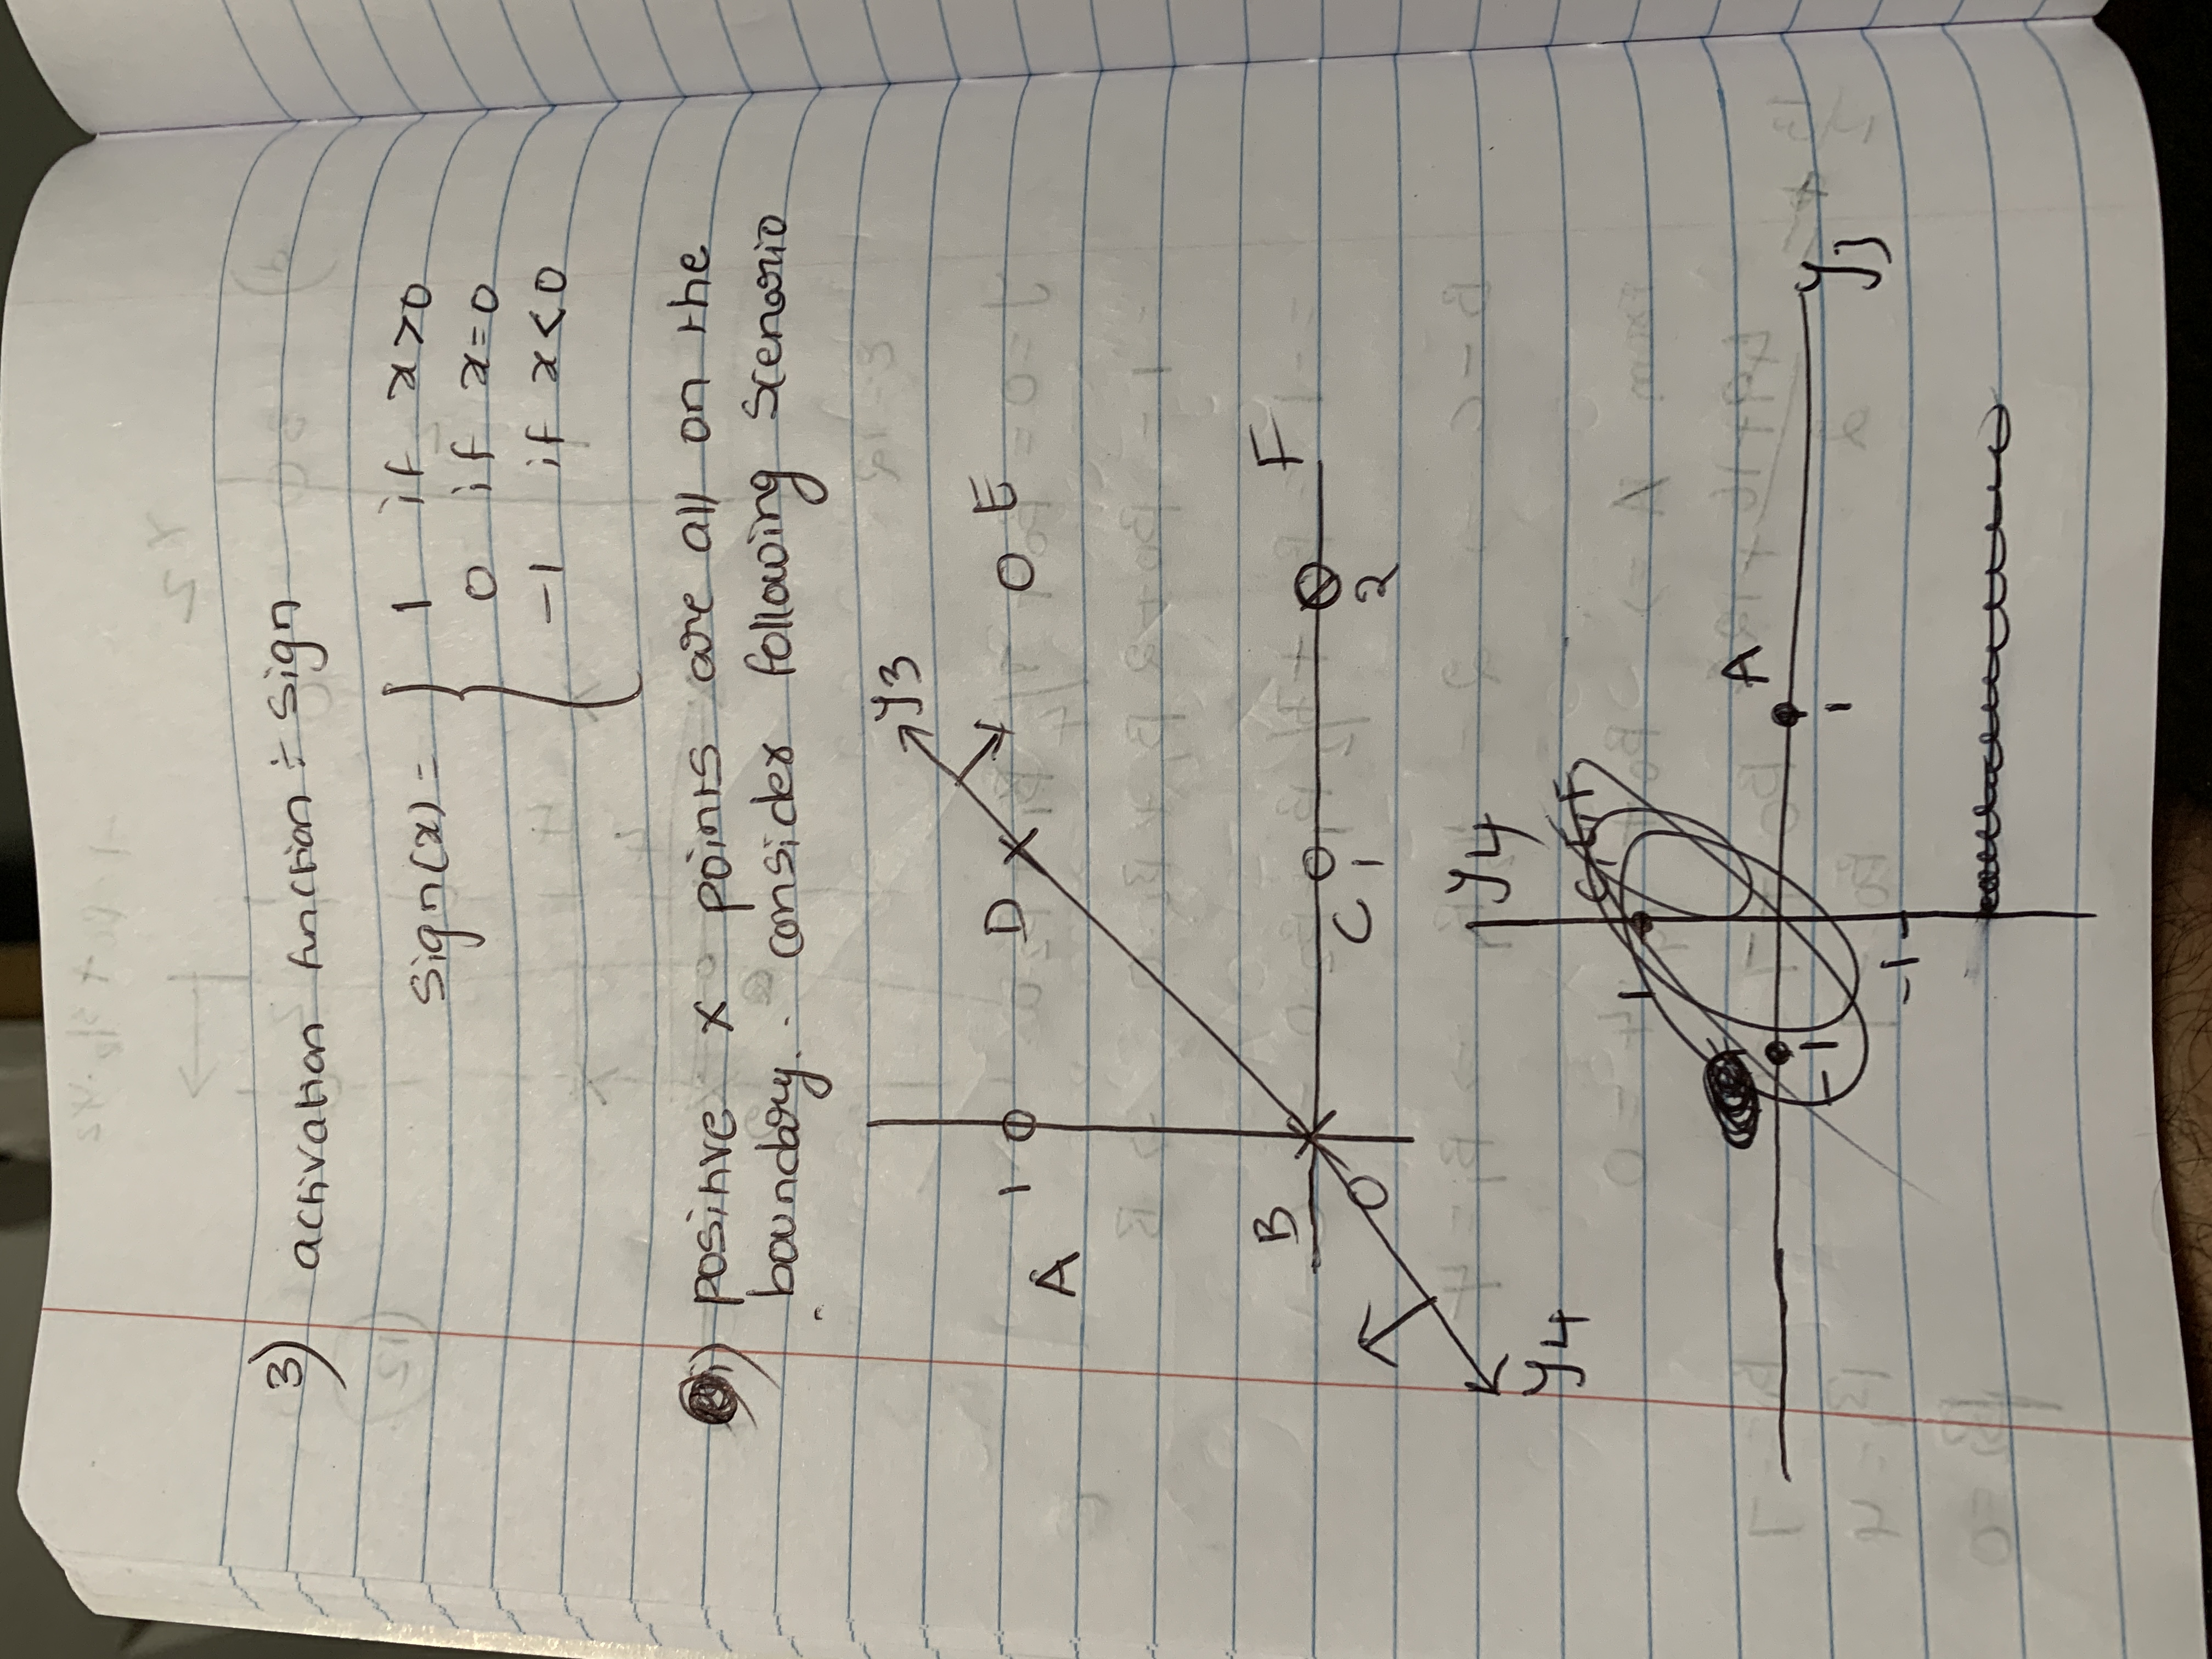 3) activation function ÷ Sign
Sign(x) = { 1 if x>0
0 if x=0
-1 if x<0
i) positive x points are all on the
boundary. consider following scenario
y3
1 D E
A
B F
0 C 1 2
y4
y4
C, E, F
1
A
-1 1 y3
-1